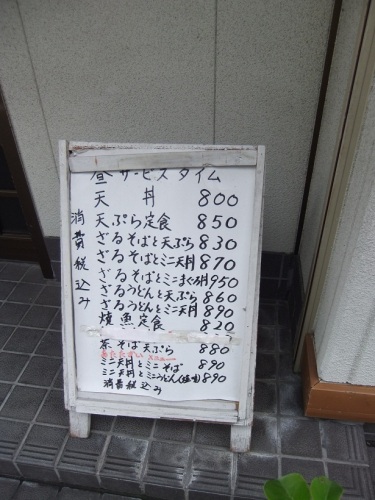 昼サービスタイム
天丼 800
天ぷら定食 850
ざるそばと天ぷら 830
ざるそばとミニ天丼 870
ざるそばとミニまぐろ丼 950
ざるうどんと天ぷら 860
ざるうどんとミニ天丼 890
焼魚定食 820
茶そば天ぷら 880
あたたかいメニュー
ミニ天丼とミニそば 890
ミニ天丼とミニうどん 890
消費税込み
消費税込み